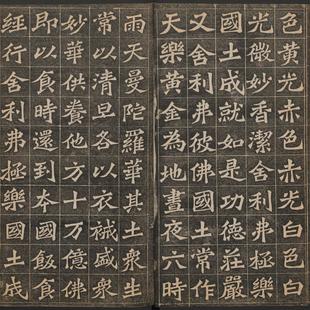 色黃光赤色赤光白色白
光微妙香潔舍利弗極樂
國土成就如是功德莊嚴
又舍利弗彼佛國土常作
天樂黃金為地晝夜六時
雨天曼陀羅華其土衆生
常以清旦各以衣祴盛衆
妙華供養他方十万億佛
即以食時還到本國飯食
經行舍利弗極樂國土成